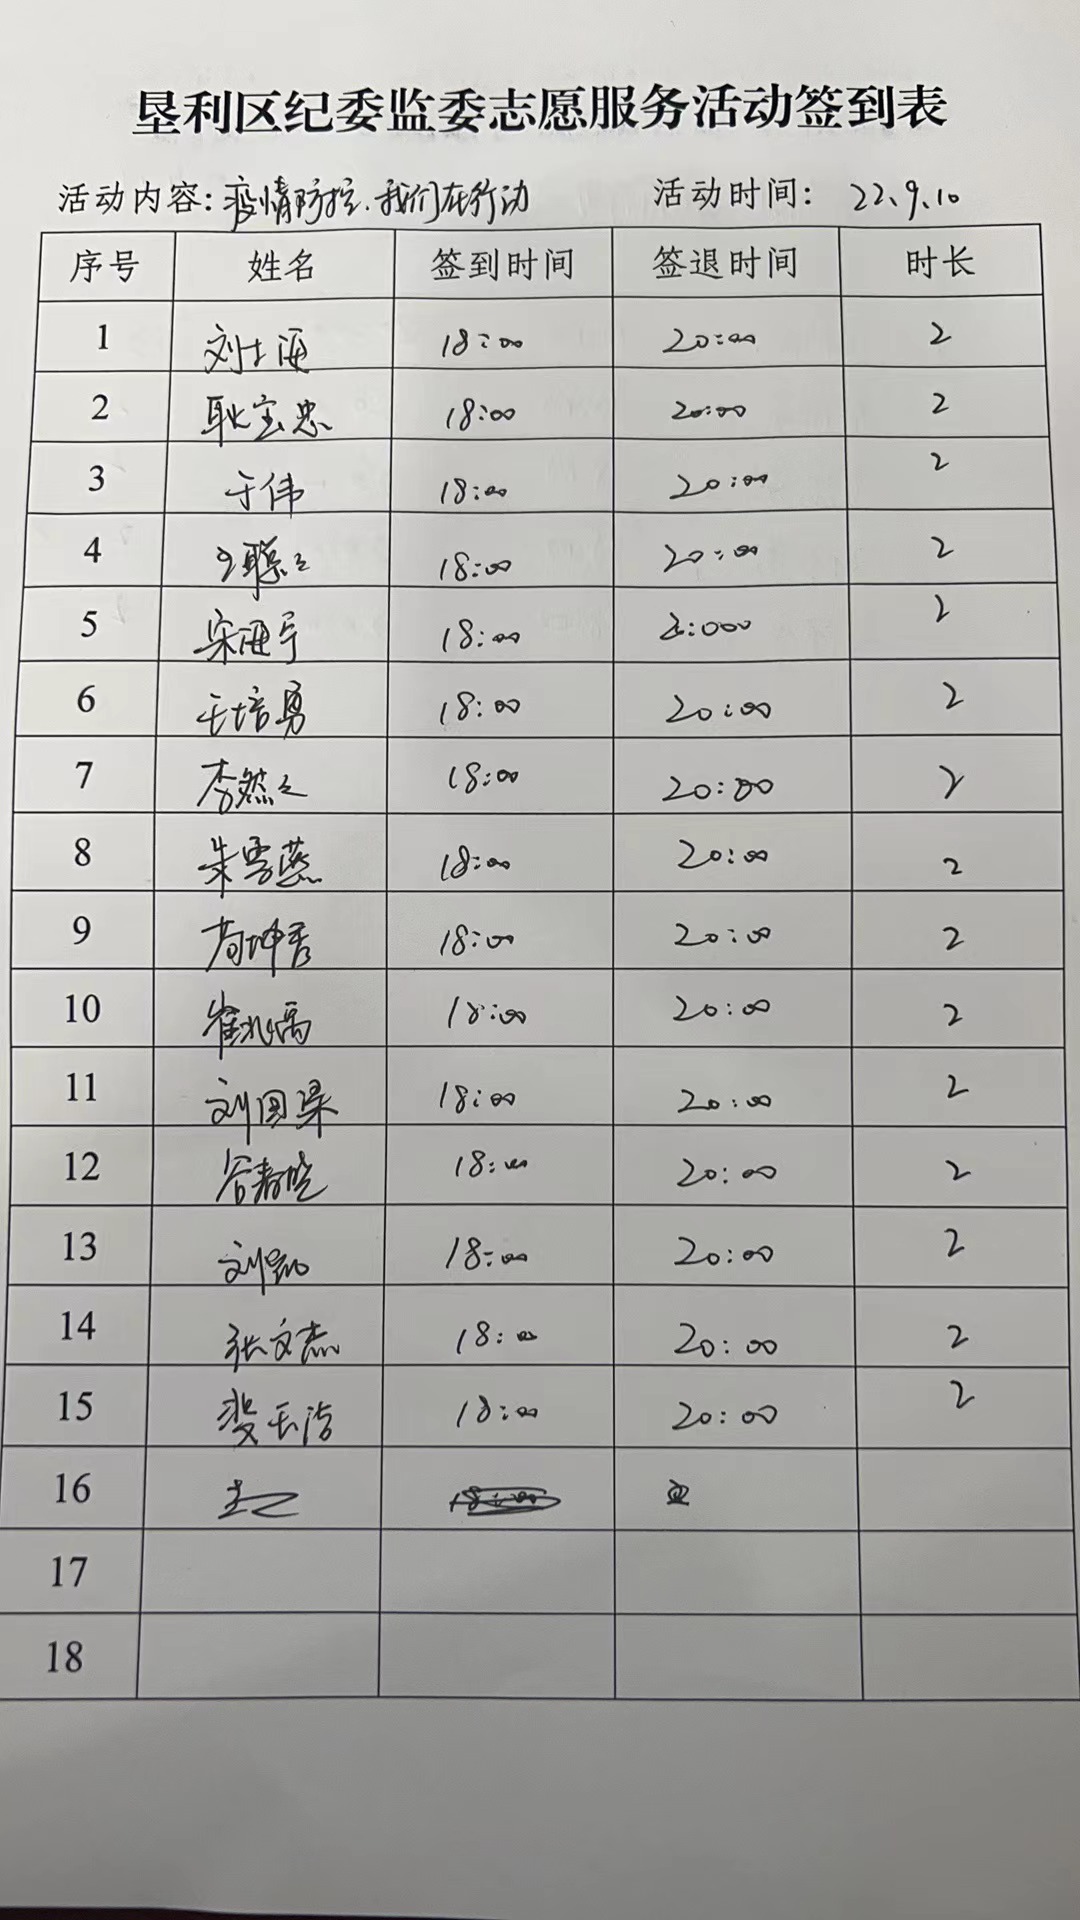 垦利区纪委监委志愿服务活动签到表
活动内容:疫情防控.我们在行动 活动时间: 22.9.10
序号 姓名 签到时间 签退时间 时长
1 刘士海 18:00 20:00 2
2 耿宝忠 18:00 20:00 2
3 于伟 18:00 20:00 2
4 王聪聪 18:00 20:00 2
5 宋海宁 18:00 2:000 2
6 王培勇 18:00 20:00 2
7 李然然 18:00 20:00 2
8 朱雪燕 18:00 20:00 2
9 坤秀 18:00 20:00 2
10 崔 18:00 20:00 2
11 刘国梁 18:00 20:00 2
12 谷春晓 18:00 20:00 2
13 刘凯 18:00 20:00 2
14 张文杰 18:00 20:00 2
15 裴玉洁 18:00 20:00 2
16
17
18